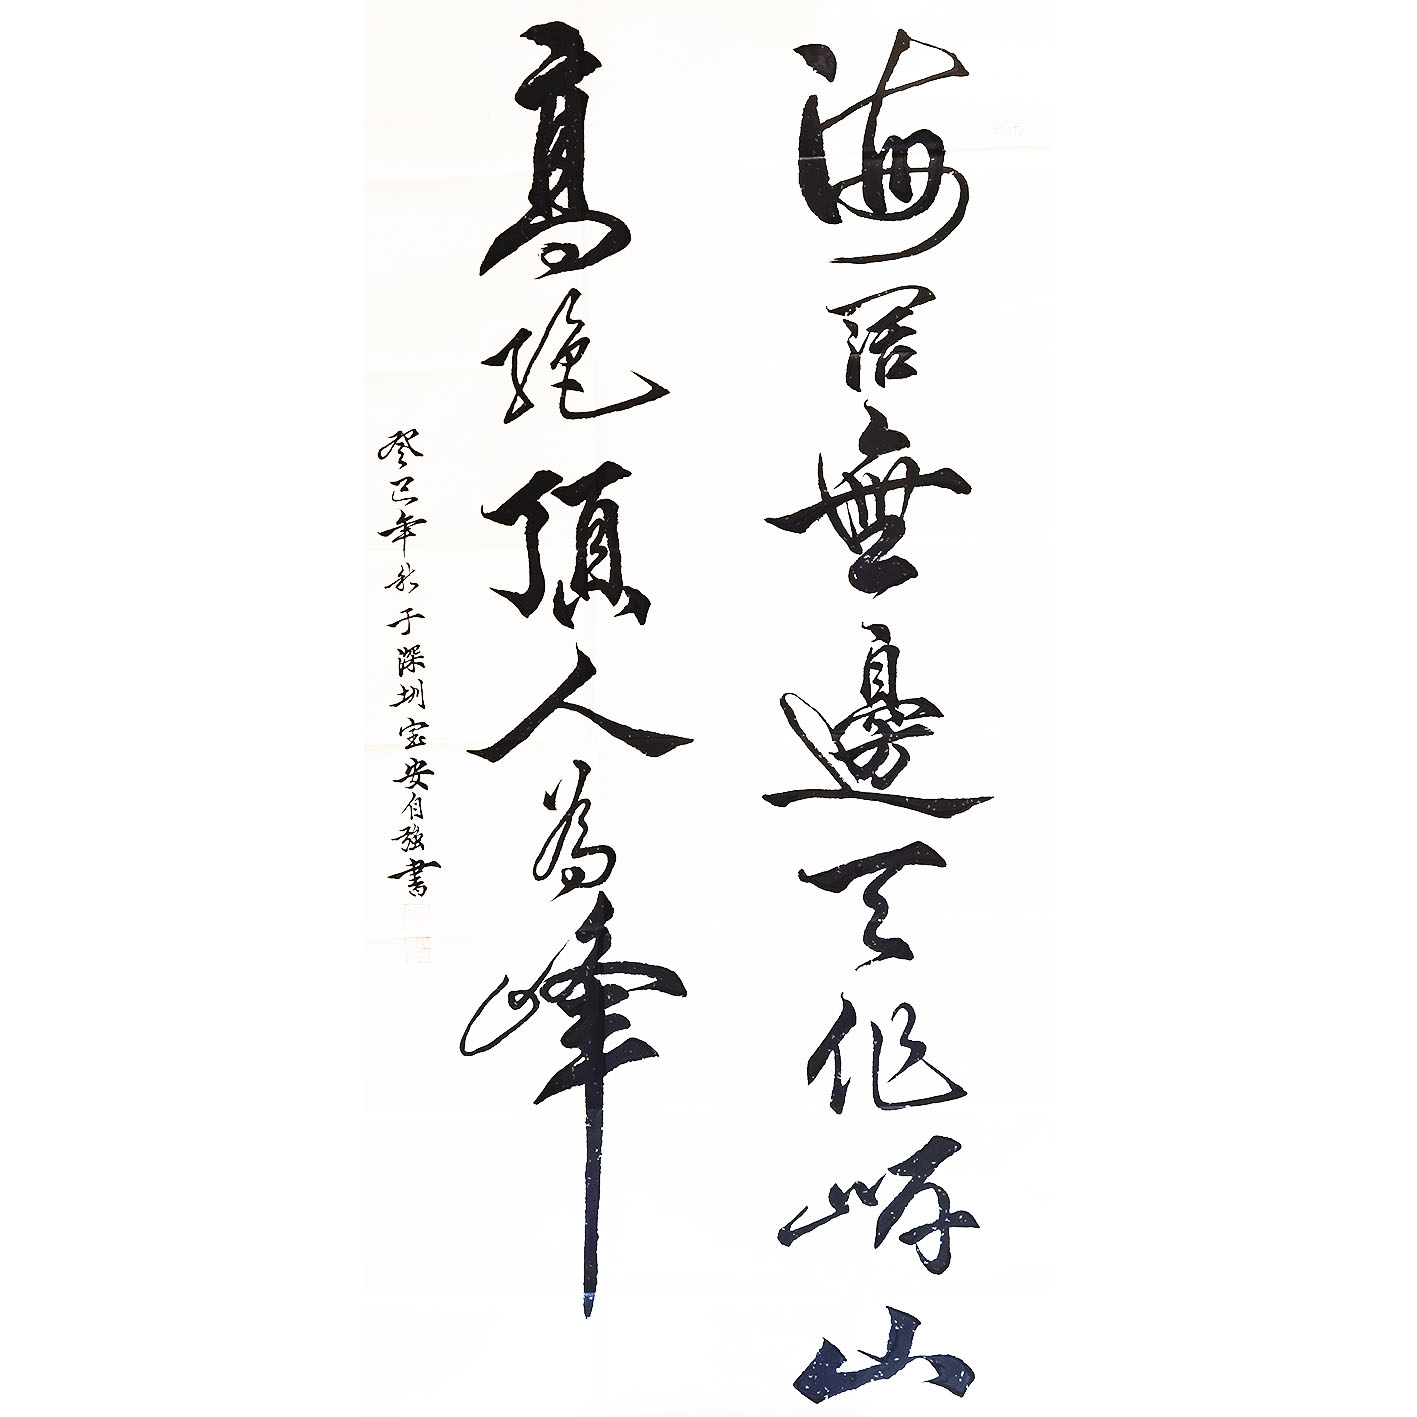 海阔無邊天作岸山
高絶頂人為峰
癸巳年秋于深圳宝安自强書